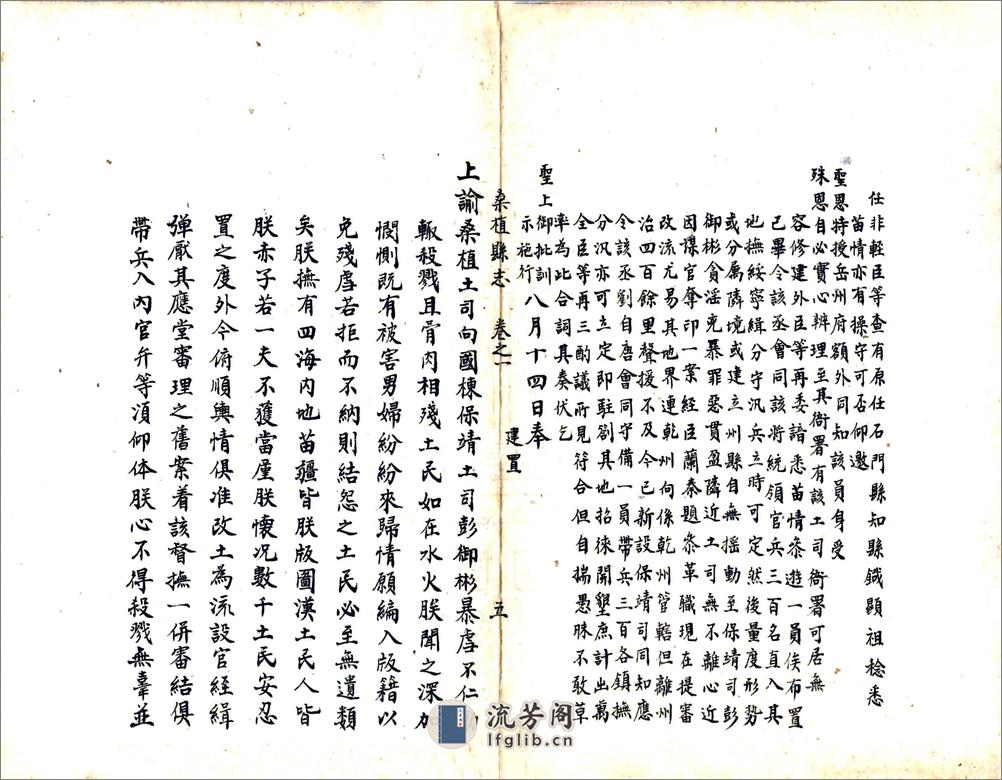 任非輕臣等查有原任石門縣知縣鐡顯祖稔悉
苗情亦有操守可否仰邀
聖恩特授岳州府額外同知該員身受
殊恩自必實心辨理至其衙署有該土司衙署可居無
容修建外臣等再委諳悉苗情叅遊一員俟布置
已畢令該丞會同該將統領官兵三百名直入其
地撫綏寧緝分守汛兵立時可定然後量度形勢
或分属隣境或建立州縣自無搖動至保靖司彭
御彬貪滛兇暴罪惡貫盈隣近土司無不離心近
因謀官奪印一案經臣蘭泰題叅革職現在提審
改流尤易其地界連乾州向係乾州管轄但離州
治四百餘里聲援不及今已新設保靖司同知應
令該丞劉自唐會同守備一員帶兵三百各鎮撫
分汛亦可立定即駐劄其地招徠開墾庶計出萬
全臣等再三酌議所見符合但自揣愚昧不敢草
率為此合詞具奏伏乞
聖上御批訓
示施行八月十四日奉
桑植縣志 卷之一 建置 五
上諭桑植土司向國棟保靖土司彭御彬暴虐不仁
輙殺戮且骨肉相殘土民如在水火朕聞之深加
憫惻既有被害男婦紛紛來歸情願編入版籍以
免殘虐若拒而不納則結怨之土民必至無遺類
矣朕撫有四海內地苗疆皆朕版圖漢土民人皆
朕赤子若一夫不獲當厪朕懷况數千土民安忍
置之度外今俯順輿情俱准改土為流設官經緝
彈厭其應堂審理之舊案着該督撫一併審結俱
帶兵入內官弁等湏仰体朕心不得殺戮無辜並
流芳阁
lfglib.cn